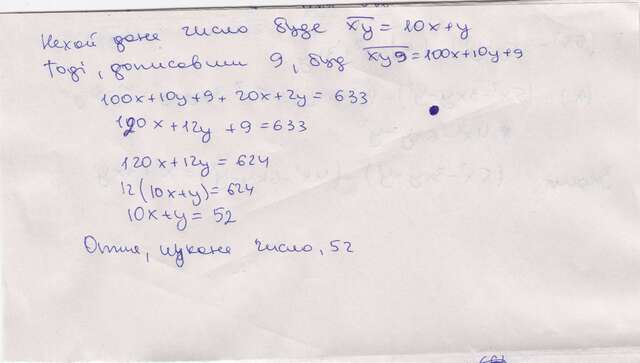 Нехай дане число буде xy = 10x+y
Тоді, дописавши 9, буд xy9 = 100x+10y+9
100x+10y+9 + 20x+2y = 633
120x+12y +9 = 633
120x+12y = 624
12(10x+y) = 624
10x+y = 52
Отже, шукане число, 52